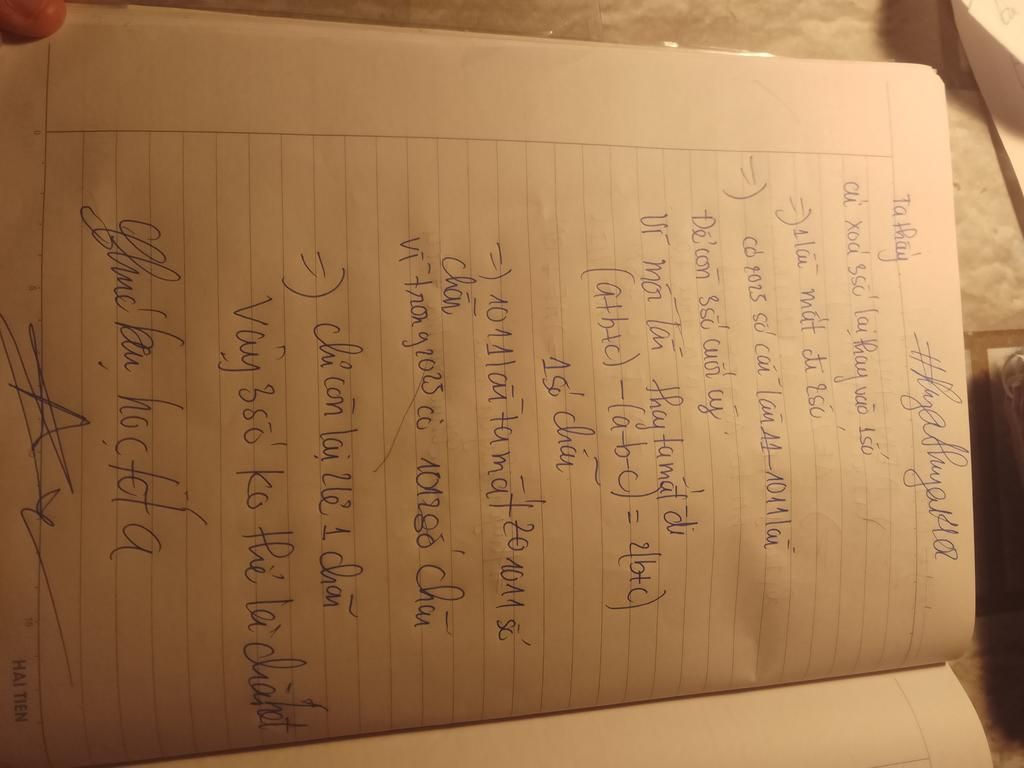 #hyakhyaksa
Ta thấy
cứ xoá 3 số lại thay vào 1 số
=) 1 lần mất đi 2 số
=) có 2025 số cần làm 1011 lần
Để còn 3 số cuối cùng
Vì mỗi lần thay ta mất đi
(a+b+c) - (a-b-c) = 2(b+c)
1 số chẵn
=) 1011 lần ta mất 1011 số
chẵn
Vì trong 2025 có 1012 số chẵn
=) chỉ còn lại 2 lẻ 1 chẵn
Vậy 3 số ko thể là
Chúc bạn học tốt ạ
HẢI TIẾN
0
5
10